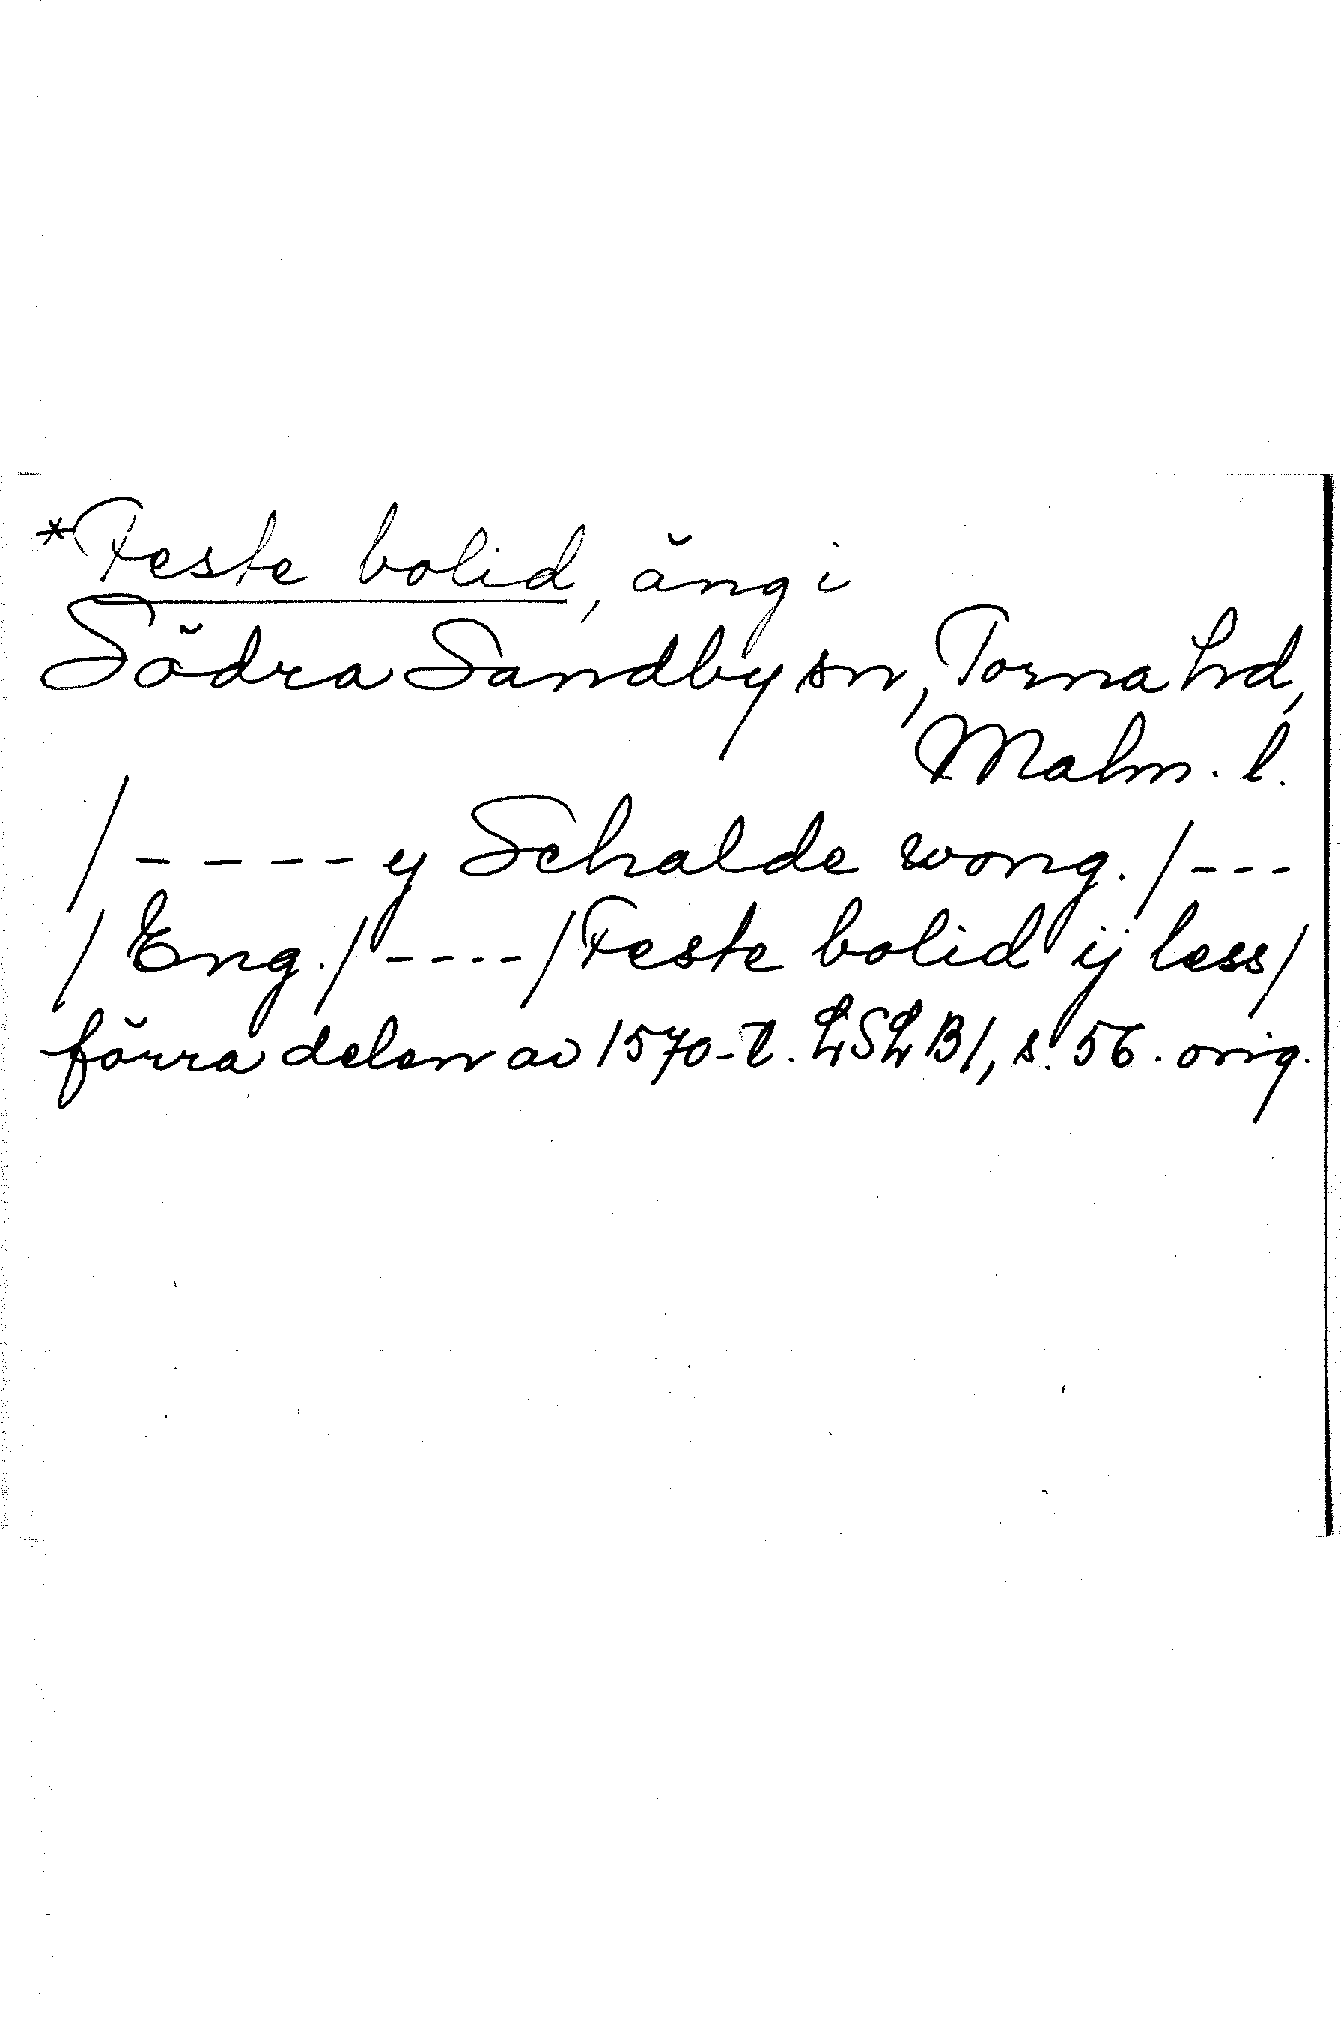 *Feste bolid, äng i
Södra Sandby sn, Torna hd,
Malm. l.
/ - - - - - y Schalde wong. / - - -
/ Eng. / - - - - / Feste bolid ij less /
förra delen av 1570-t. LSLB1, s. 56. orig.